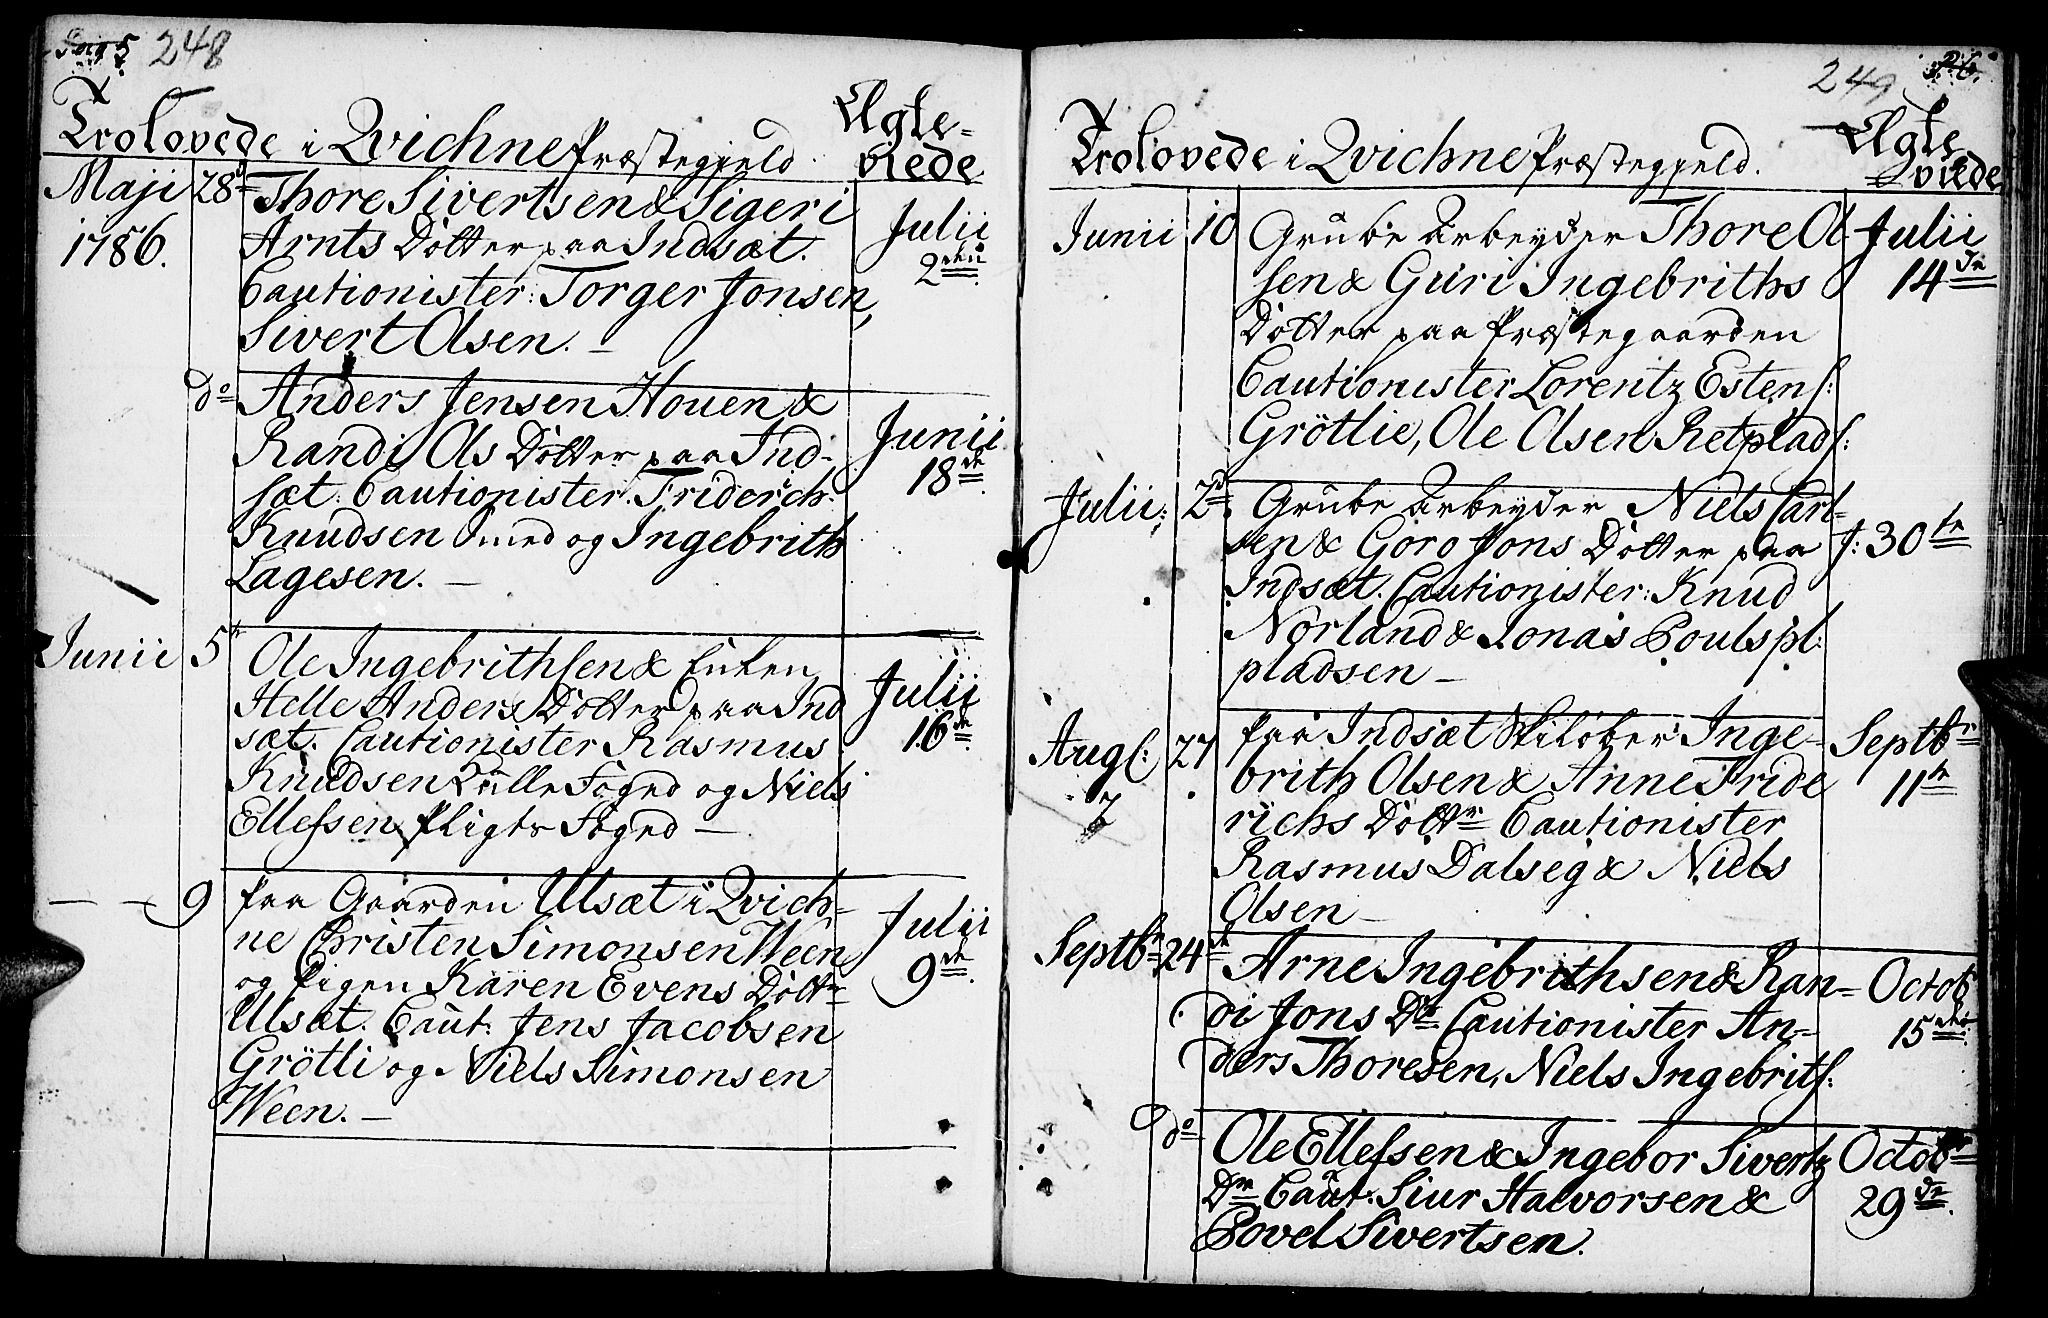 Pag 5 248
Trolovede i Qvichne Præstegjeld
Ægte-
viede
Maji 28d
1786.
Thore Sivertsen & Sigeri
Arnts Dotter paa Indsæt.
Cautionister: Torger Jonsen,
Sivert Olsen. –
Julii
2den
do
Anders Jensen Houen &
Randi Ols Dotter paa Ind-
sæt. Cautionister. Friderich
Knudsen Smed og Ingebrith
Lagesen. –
Junii
18de
Junii 5te
Ole Ingebrithsen & Enken
Helle Anders Dotter paa Ind
sæt. Cautionister Rasmus
Knudsen Foged og Niels
Ellefsen Pligts Fogd –
Julii
16de
– – 9
paa Gaarden Ulsæt i Qvich-
ne Christen Simonsen Ween
og Pigen Karen Evens Dottr
Ulsæt. Caut. Jens Jacobsen
Grötli og Niels Simonsen
Ween. –
Julii
9de
249 p. 6.
Trolovede i Qvichne Præstegjeld.
Ægte
viede
Junii 10
Grube Arbeyder Thore Ol
sen & Guri Ingebriths
Dotter paa Præstegaarden
Cautionister Lorentz Estens:
Grötlie, Ole Olsen Retplads:
Julii
14de
Julii: 2d
Grube Arbeyder Niels Carl-
sen & Goro Jons Dotter paa
Indsæt. Cautionister: Knud
Norland & Jonas Poulspl:
pladsen –
J: 30te
Aug: 27
paa Indsæt Skilöber Inge-
brith Olsen & Anne Fride
richs Dottr Cautionister
Rasmus Dalseg & Niels
Olsen –
Septbr
11te
Septbr 24de
Arne Ingebrithsen & Ran-
di Jons Dr Cautionister An-
ders Thoresen, Niels Ingebrits:
Octob
15den
do
Ole Ellefsen & Ingebor Sivertz
Dr Caut. Siur Halvorsen &
Povel Sivertsen.
Octobr
29de